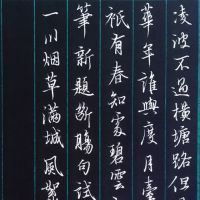 凌波不過橫塘路但
華年誰與度月臺
衹有春知處碧雲
筆新題斷腸句試
一川烟草滿城風絮